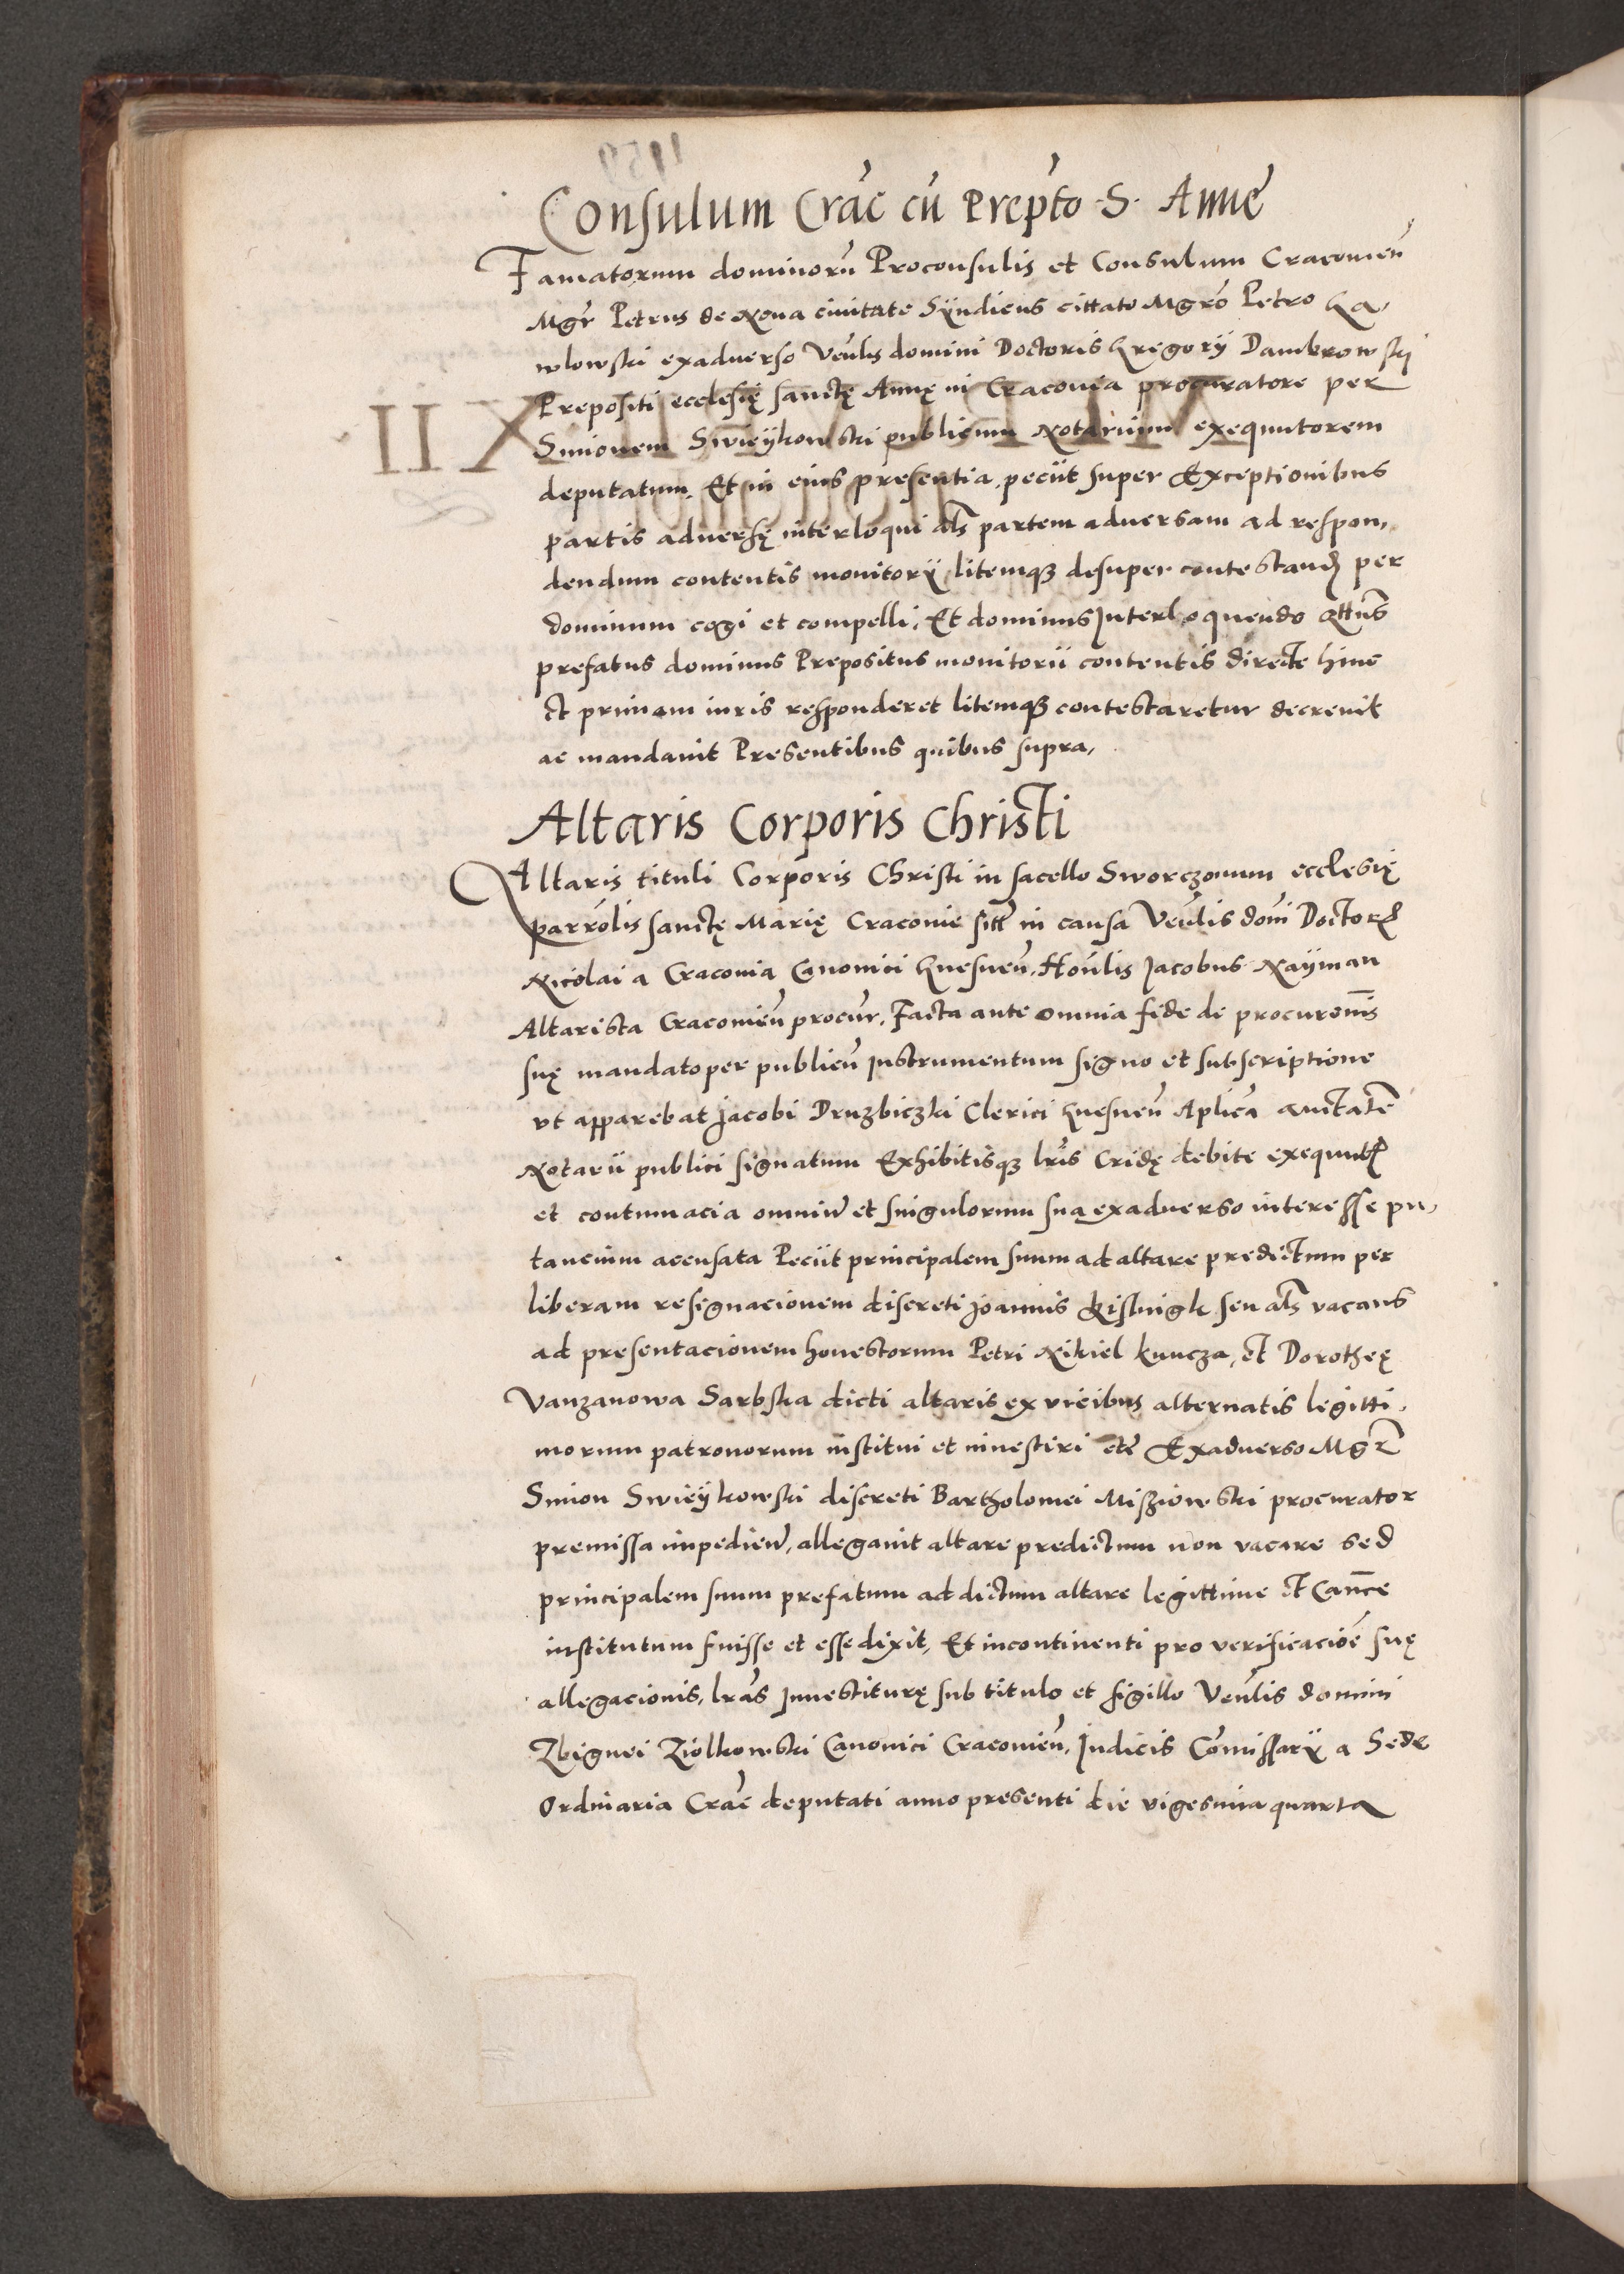 Consulum Crac̄ cū Prepto · S · Annę
Famatorum dominorū Proconsulis et Consulum Cracouieñ
Mgr̄ Petrus de Noua ciuitate Sÿndicus cittato Mgrō Petro Ga,
wlowski exaduerso Veūlis domini Doctoris Gregorÿ Dambrowski
Prepositi ecclesię sanctę Annę in Cracouia procuratore per
Simonem Swieÿkowski publicum Notarium exequutorem
deputatum. Et in eius presentia, peciit super Exceptionibus
partis aduersę interloqui als partem aduersam ad respon,
dendum contentis monitorÿ litemqꝫ desuper contestand per
dominum cogi et compelli, Et dominus Interloquendo qttus
prefatus dominus Prepositus monitorii contentis directe hinc
et primam iuris responderet litemqꝫ contestaretur decreuit
ac mandauit Presentibus quibus supra,
Altaris Corporis Christi
Altaris tituli Corporis Christi in sacello Sworczonum ecclesię
parrōlis sanctę Marię Cracouie sitt̄ in causa Veūlis dom̄ Doctor
Nicolai a Cracouia Canonici Gnesneñ, Hoūlis Jacobus Naÿman
Altarista Cracouieñ procur̄, Facta ante omnia fide de procuroīs
suę mandato per publicū Instrumentum signo et subscriptione
vt apparebat Jacobi Druzbiczki Clerici Gnesneñ Aplica auctatē
Notarii publici signatum Exhibitisqꝫ lris Cridę debite exequut
et contumacia omniū et singulorum sua exaduerso interesse pu,
tancium accusata Peciit principalem suum ad altare predictum per
liberam resignacionem discreti Joannis seu als vacans
ad presentacionem honestorum Petri Nikiel kuncza, et Dorotheę
Vanzanowa Sarbska dicti altaris ex vicibus alternatis legitti,
morum patronorum institui et inuestiri etc̄ Exaduerso Mgr̄
Simon Swieÿkowski discreti Bartholomei Miszÿowski procurator
premissa impedien̄, allegauit altare predictum non vacare sed
principalem suum prefatum ad dictum altare legittime et Canͨce
institutum fuisse et esse dixit, Et incontinenti pro verificacioē suę
allegacionis, lras Inuestiturę sub titulo et sigillo Veūlis domini
Zbignei Ziolkowski Canonici Cracouieñ, Iudicis Comissarÿ a Sede
Ordinaria Crac̄ deputati anno presenti die vigesima quarta